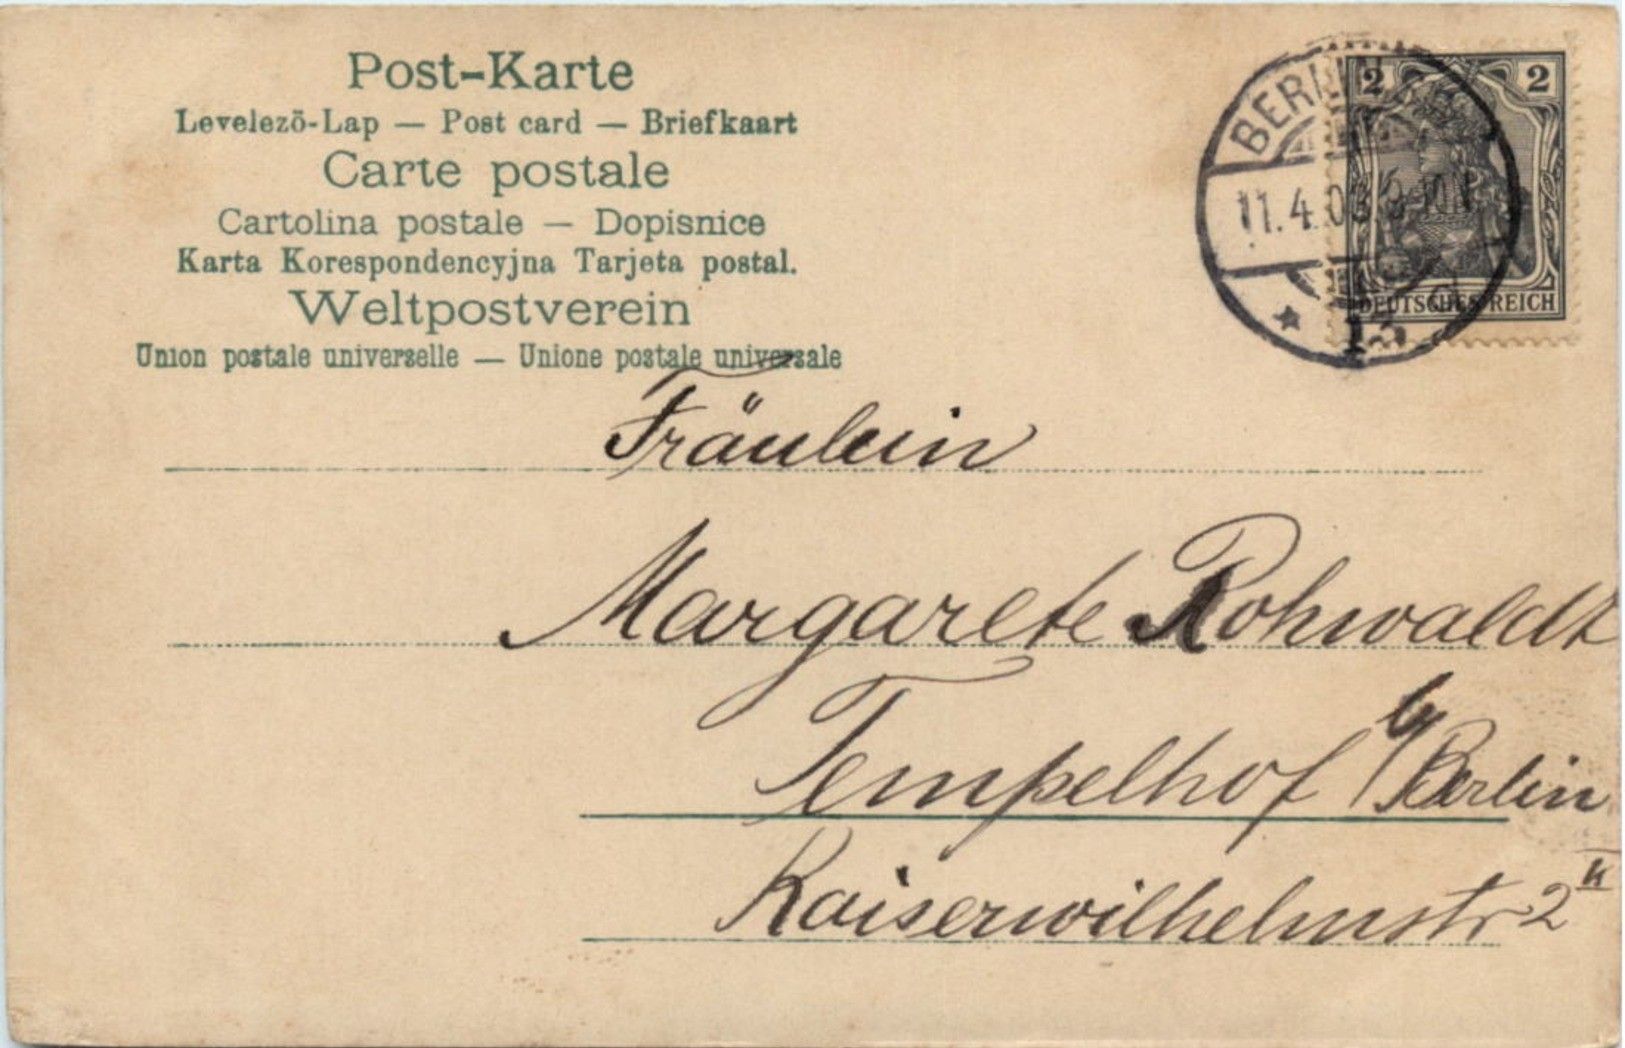 Post-Karte
Levelezö-Lap — Post card — Briefkaart
Carte postale
Cartolina postale — Dopisnice
Karta Korespondencyjna Tarjeta postal.
Weltpostverein
Union postale universelle — Unione postale universale
BERLIN
11.4.03
2 2
DEUTSCHES REICH
Fräulein
Margarete Rohwaldt
Tempelhof b/Berlin
Kaiserwilhelmstr 2 II